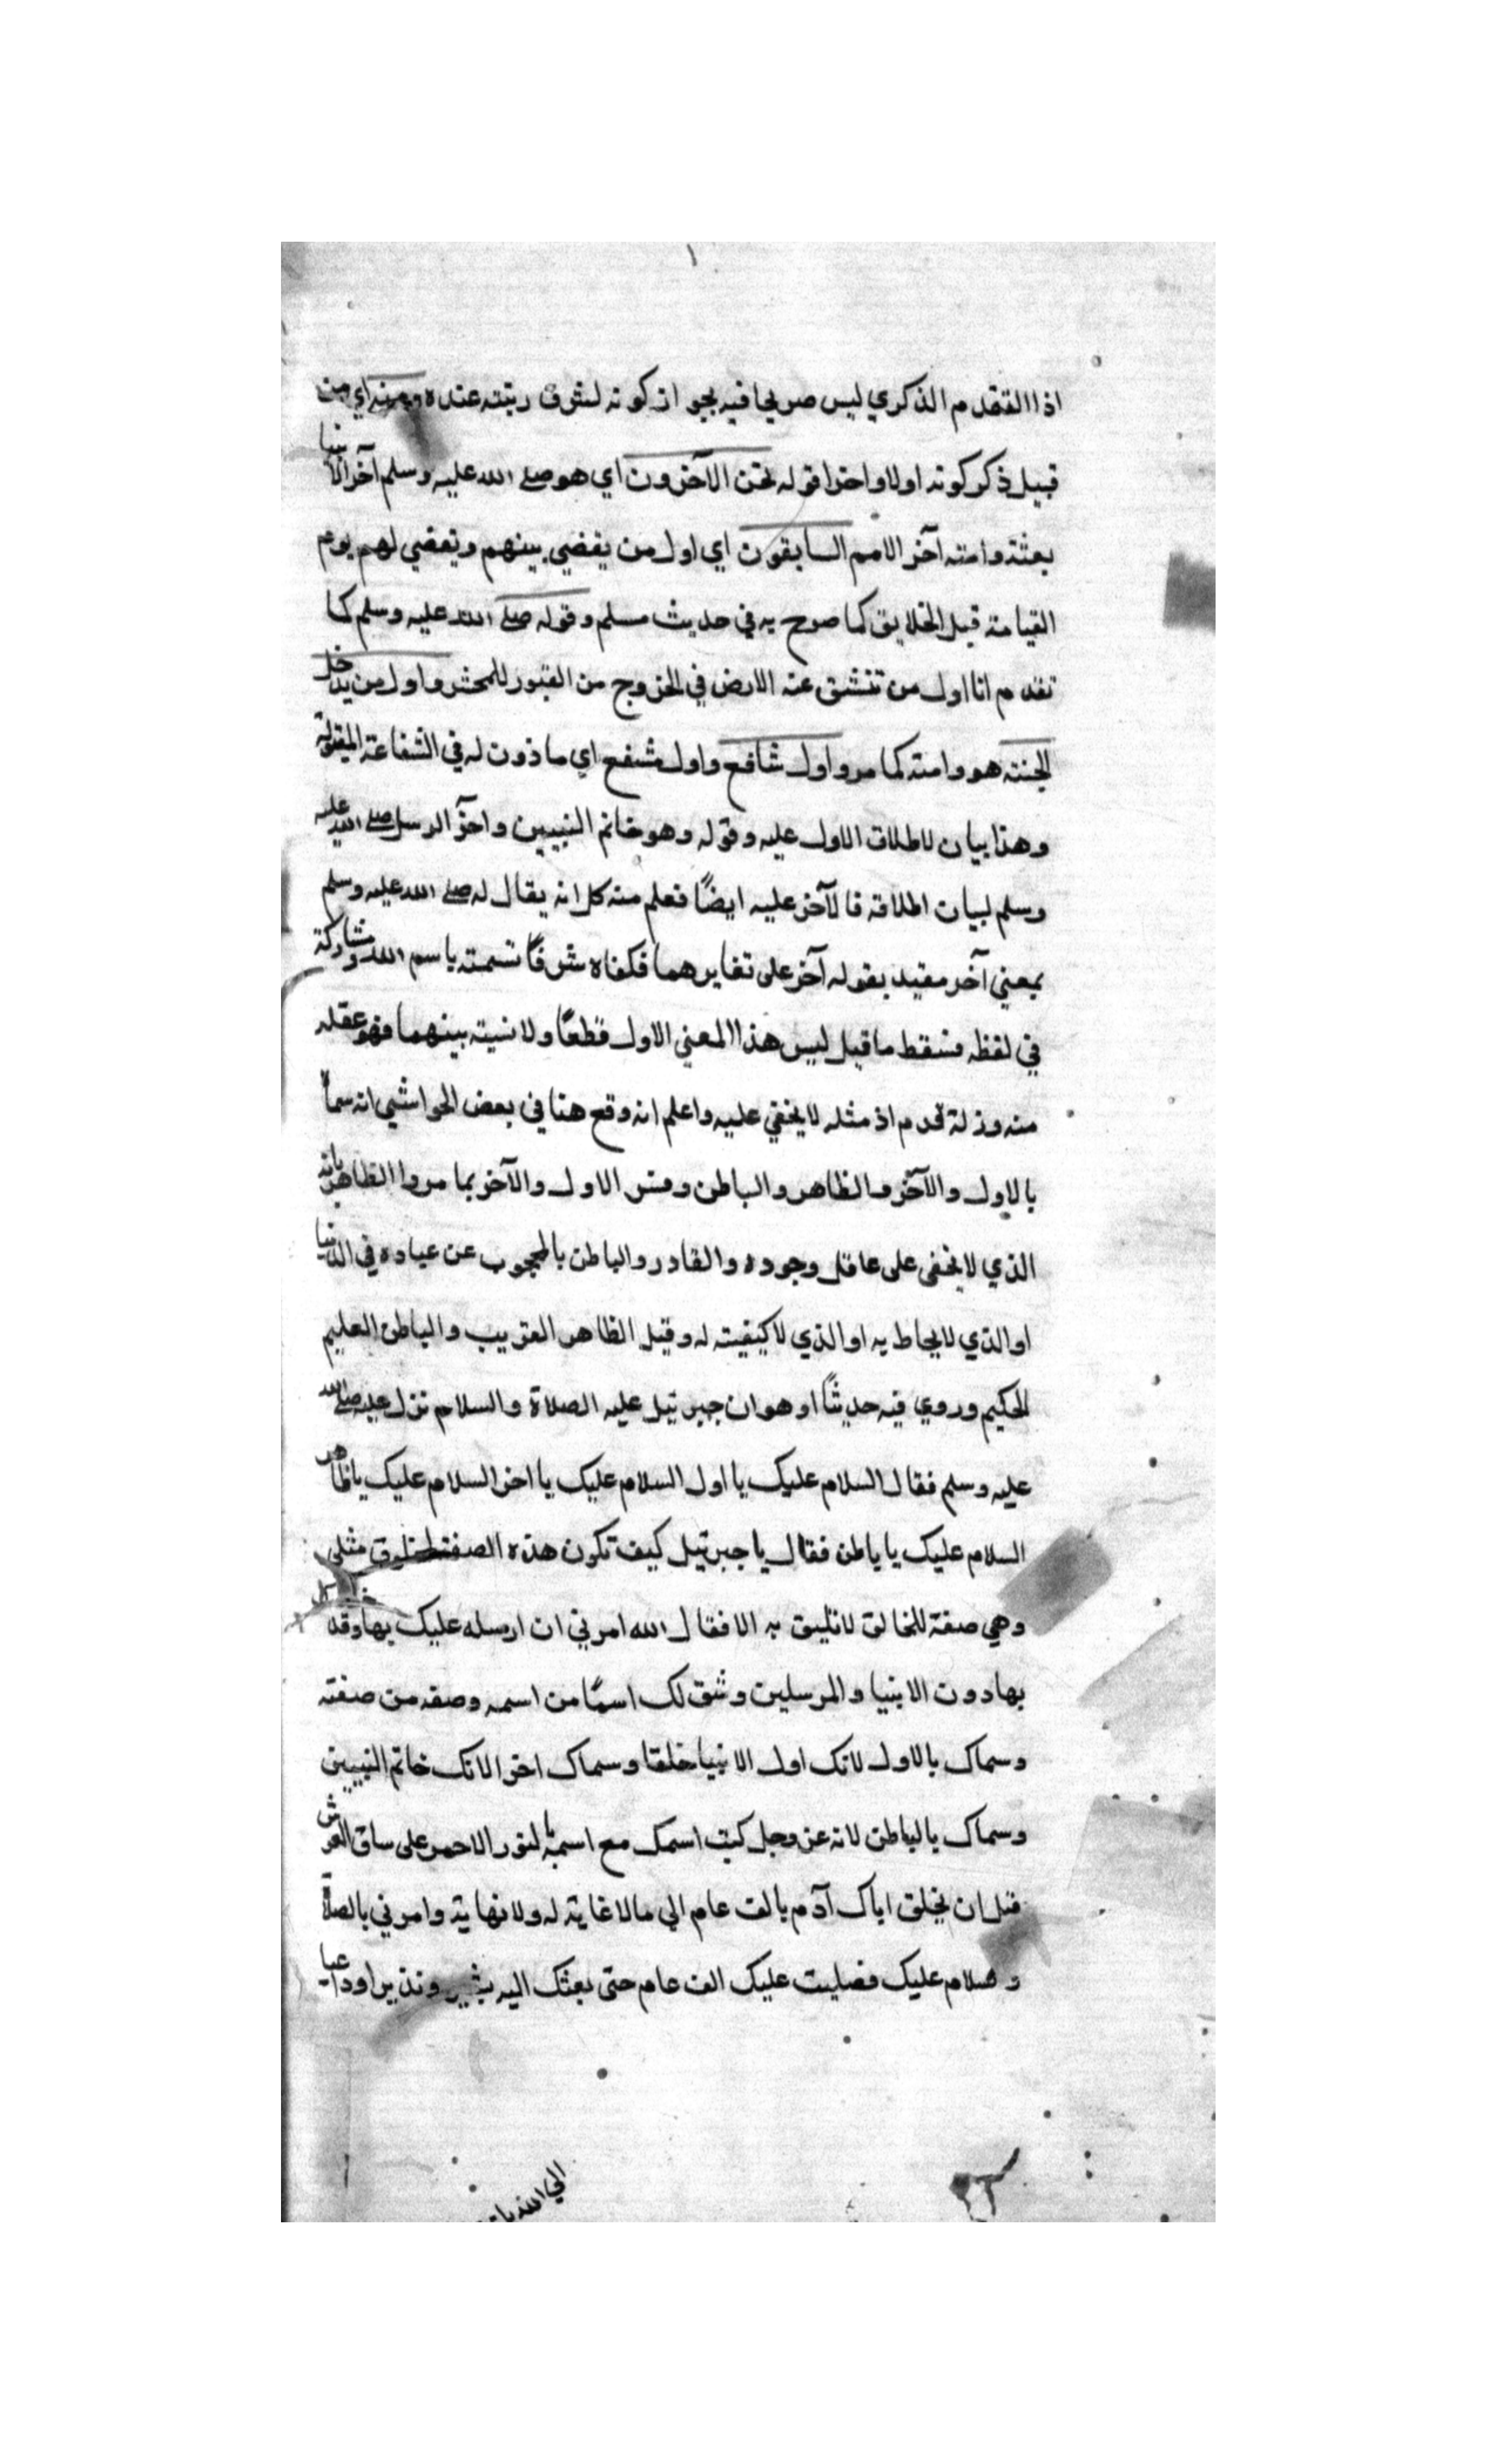 ١
اذا التقدم الذكري ليس صريحا فيه بجواز كونه لشرف رتبته عنده ومنه اي من
قبيل ذكر كونه اولا واخرا قوله نحن الآخرون اي هو صلى الله عليه وسلم آخر الانبيا
بعثة وامته آخر الامم السابقون اي اول من يقضي بينهم وتعضي لهم يوم
القيامة قبل الخلايق كما صرح به في حديث مسلم وقوله صلى الله عليه وسلم كما
تقدم انا اول من تنشق عنه الارض في الخروج من القبور للمحشر واول من يدخل
الجنة هو وامته كما مر واول شافع واول مشفع اي ماذون له في الشفاعة المقبولة
وهذا بيان لاطلاق الاول عليه وقوله وهو خاتم النبيين واخر الرسل صلى الله عليه
وسلم لبيان اطلاقه فالآخر عليه ايضًا فعلم منه كل انه يقال له صلى الله عليه وسلم
بمعني آخر مقيد بقوله آخر على تغايرهما فكفاه شرفًا تسمته باسم الله ومشاركة
في لفظه فسقط ما قيل ليس هذا المعني الاول قطعًا ولا نسبته بينهما فهو عقله
منه وزلة قدم اذ مثله لا يخفي عليه واعلم انه وقع هنا في بعض الحواشي انه سما
بالاول والآخر والظاهر والباطن وفسر الاول والآخر بما مر والظاهر بانه
الذي لا يخفى على عاقل وجوده والقادر والباطن بالمحجوب عن عباده في الدنيا
او الذي لا يحاط به او الذي لا كيفيته له وقيل الظاهر القريب والباطن العليم
الحكيم وروي فيه حديثًا او هو ان جبرئيل عليه الصلاة والسلام نزل عليه صلى الله
عليه وسلم فقال السلام عليك يا اول السلام عليك يا اخر السلام عليك يا ظاهر
السلام عليك يا باطن فقال يا جبرئيل كيف تكون هذه الصفة لمخلوق مثلي
وهي صفة للخالق لا تليق به الا فقال الله امرني ان ارسله عليك بها وقد
بها دون الانبيا والمرسلين وشق لك اسمًا من اسمه وصفه من صفته
وسماك بالاول لانك اول الانبيا خلقا وسماك اخر الانك خاتم النبيين
وسماك بالباطن لانه عز وجل كتب اسمك مع اسمه بالنور الاحمر على ساق العرش
قبل ان يخلق اباك آدم بالف عام الي ما لا غاية له ولا نهاية وامرني بالصلاة
والسلام عليك فصليت عليك الف عام حتى بعثك اليه بشير ونذيرا وداعيا
الي الله